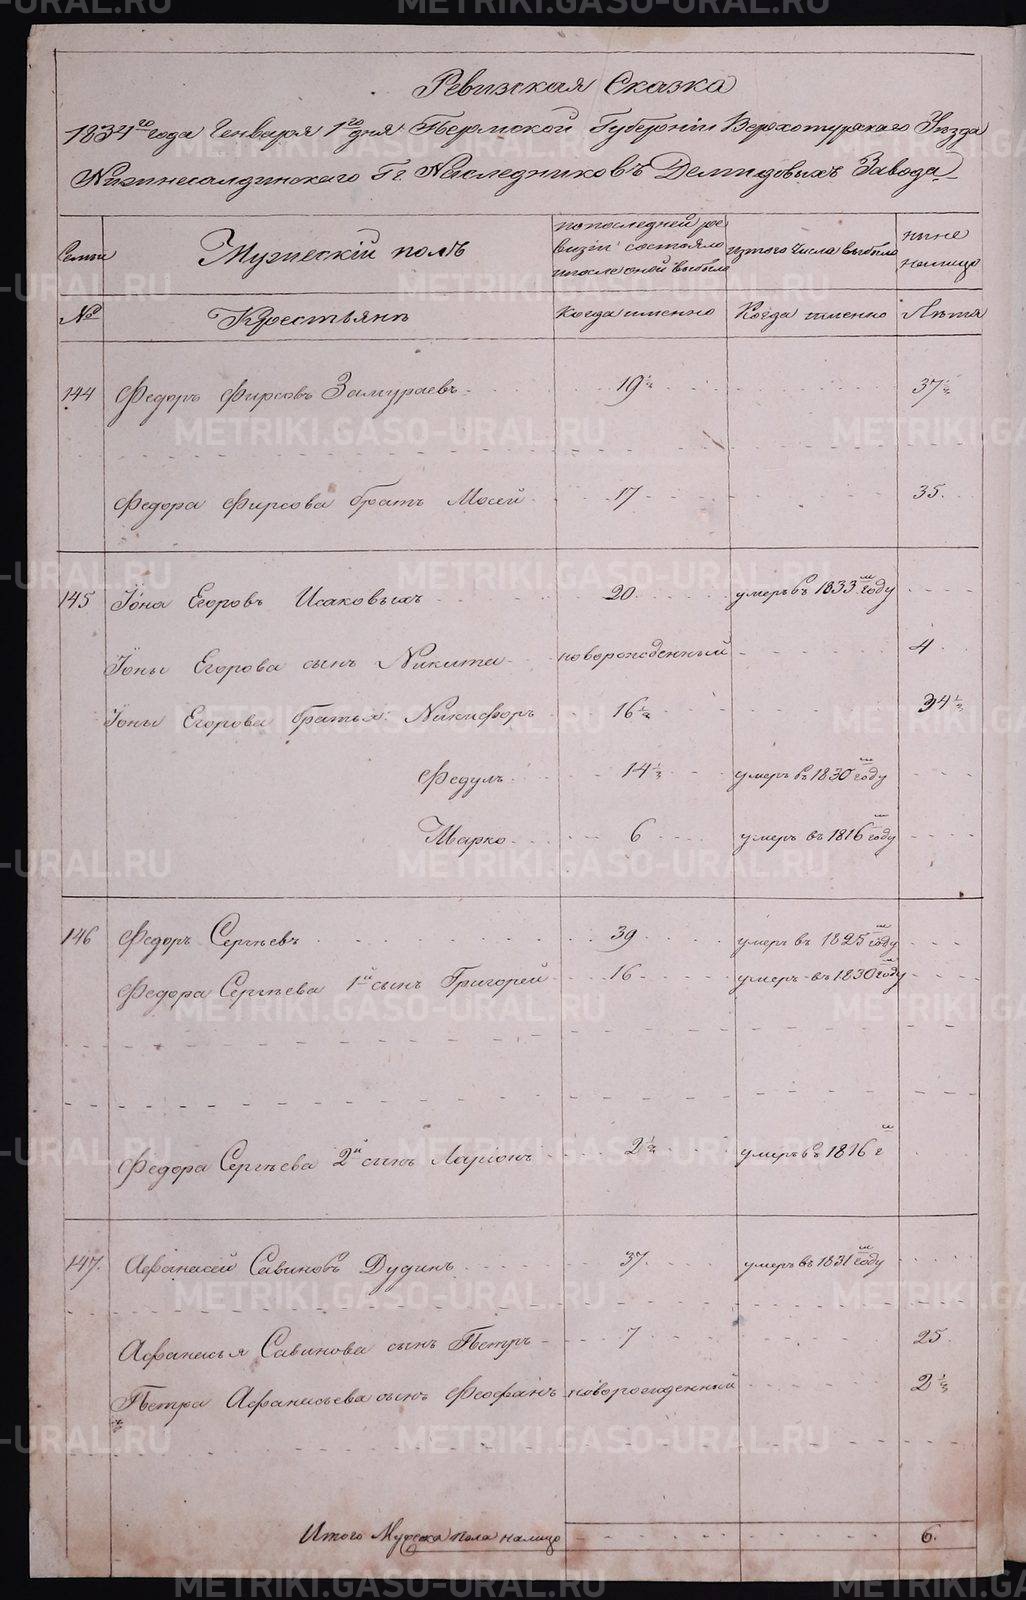 Ревизская Сказка
1834го года Генваря 1го дня Пермской Губернiи Верхотурскаго Уѣзда
Нижнесалдинскаго Гг. Наследниковъ Демидовыхъ Завода
Семьи Мужескiй полъ попоследней ре визiи состояло ипосле оной выбыло изтого числа выбыло ныне налицо
№ Крестьянъ Когда имянно Когда имянно Лѣта
144 Федоръ Фирсовъ Замураевъ 19½ 37½
Федора Фирсова братъ Мосей 17 35.
145 Iона Егоровъ Исаковыхъ 20 умеръ въ 1833м году
Iоны Егорова сынъ Никита новорожденный 4
Iоны Егорова братья: Никифоръ 16½ 34½
Федулъ 14½ умеръ въ 1830м году
Марко 6 умеръ въ 1816м году
146 Федоръ Сергѣевъ 39 умеръ въ 1825м году
Федора Сергѣева 1й сынъ Григорей 16 умеръ въ 1830м году
Федора Сергѣева 2й сынъ Ларiонъ 2½ умеръ въ 1816м г
147. Афанасей Савиновъ Дудинъ 37. умеръ въ 1831м году
Афанасья Савинова сынъ Петръ 7 25.
Петра Афанасьева сынъ Феофанъ новорожденный 2½
Итого Мужска пола налицо 6.
METRIKI.GASO-URAL.RU